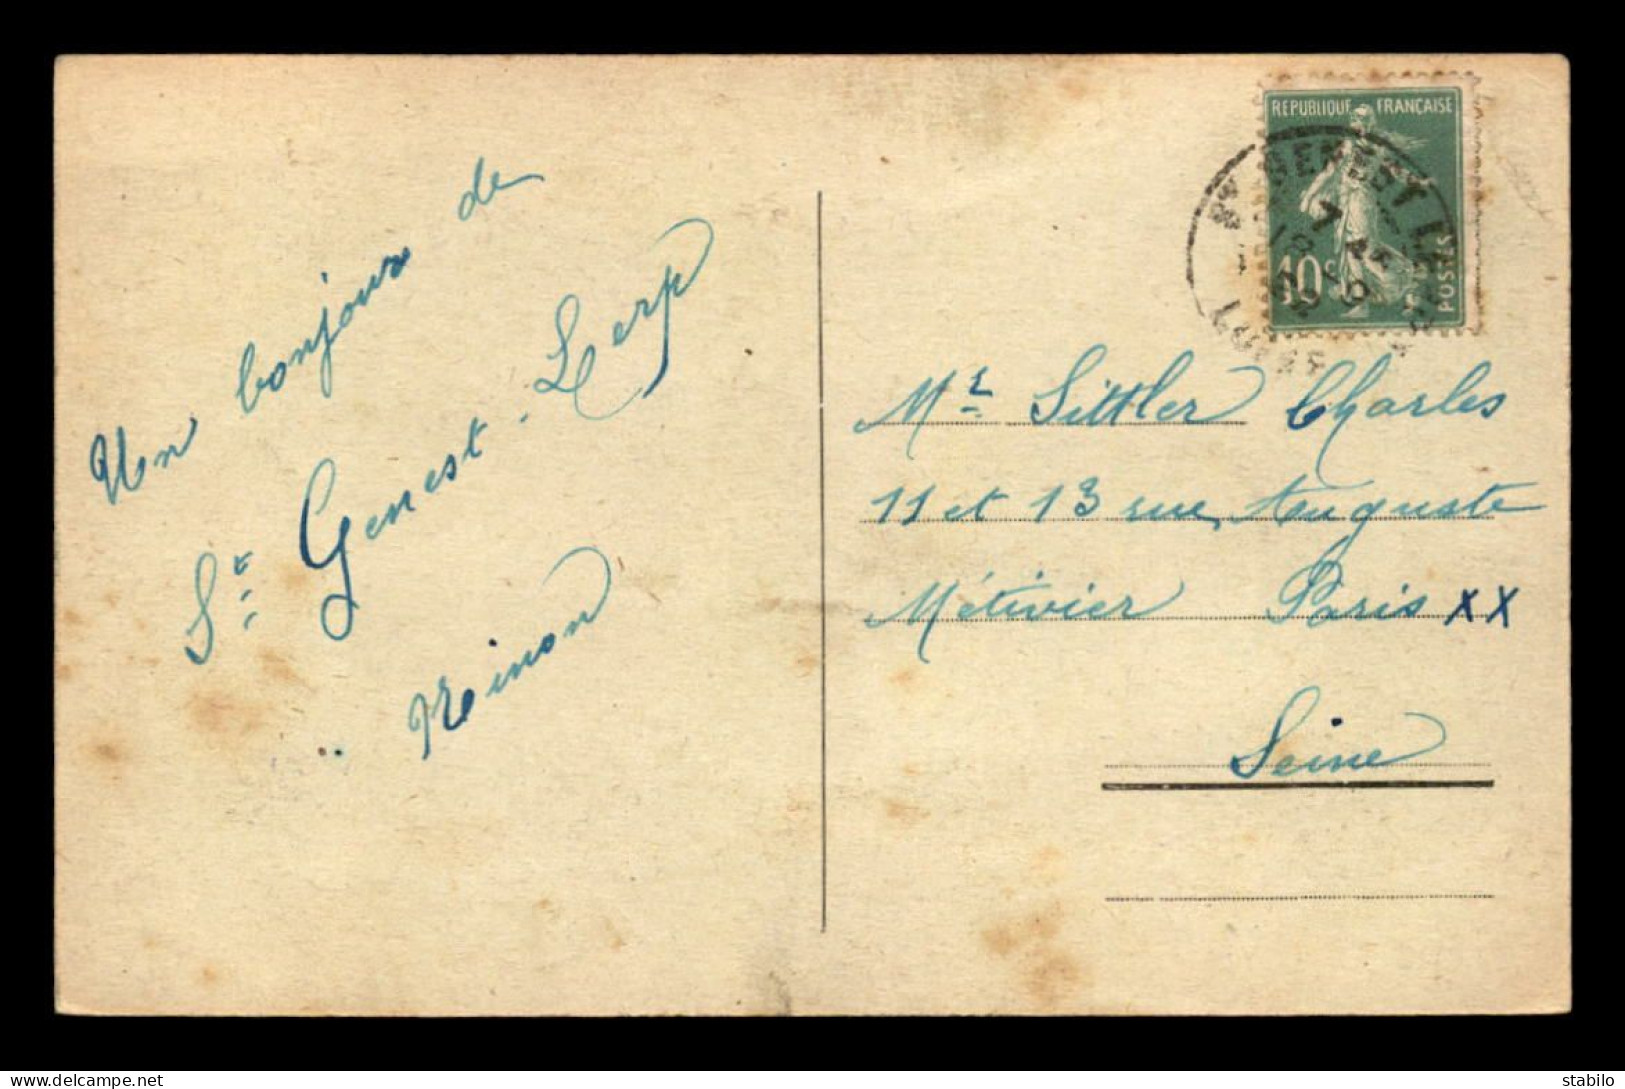 Un bonjour de
St. Genest-Lerp
Ninon
REPUBLIQUE FRANÇAISE
10c
POSTES
ST GENEST LE
7
LOIRE
Mr Sittler Charles
11 et 13 rue Auguste
Métivier Paris XX
Seine
delcampe.net
stabilo